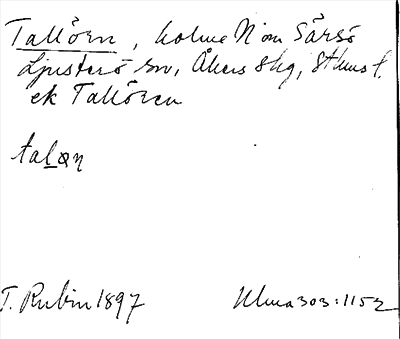 Tallörn, holme N om Särsö
Ljusterö sn, Åkers skg, Sthms l.
ek Tallören
talœn
T. Rubin 1897
Ulma 303:1152